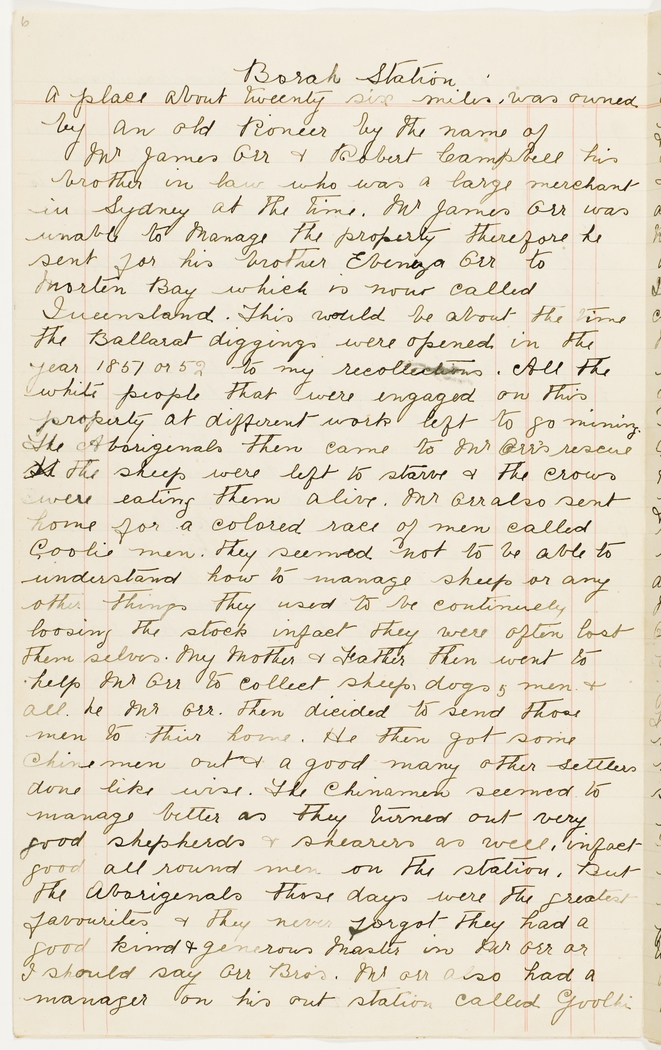 6
Borah Station
A place about twenty six miles, was owned
by an old Pioneer by the name of
Mr James Orr & Robert Campbell his
brother in law who was a large merchant
in Sydney at the time. Mr James Orr was
unable to manage the property therefore he
sent for his brother Ebenza Orr to
Morten Bay which is now called
Queensland. This would be about the time
the Ballarat diggings were opened in the
year 1851 or 52 to my recollections. All the
white people that were engaged on this
property at different work left to go mining.
The Aborigenals then came to Mr Orr's rescue
the sheep were left to starve & the crows
were eating them alive. Mr Orr also sent
home for a colored race of men called
Coolie men. They seemed not to be able to
understand how to manage sheep or any
other things they used to be continuely
loosing the stock infact they were often lost
them selves. My Mother & Father then went to
help Mr Orr to collect sheep, dogs, men &
all. he Mr Orr. then dicided to send those
men to thier home. He then got some
Chinemen out & a good many other settlers
done like wise. The Chinamen seemed to
manage better as they turned out very
good shepherds & shearers as well, infact
good all round men on the station. But
the Aborigenals those days were the greatest
favourites, & they never forgot they had a
good kind & generous Master in Mr Orr or
I should say Orr Bros. Mr Orr also had a
manager on his out station called